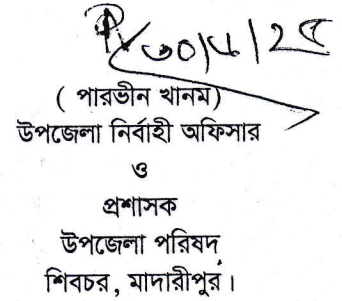 ৩০/৬/২৫
( পারভীন খানম)
উপজেলা নির্বাহী অফিসার
ও
প্রশাসক
উপজেলা পরিষদ
শিবচর, মাদারীপুর।